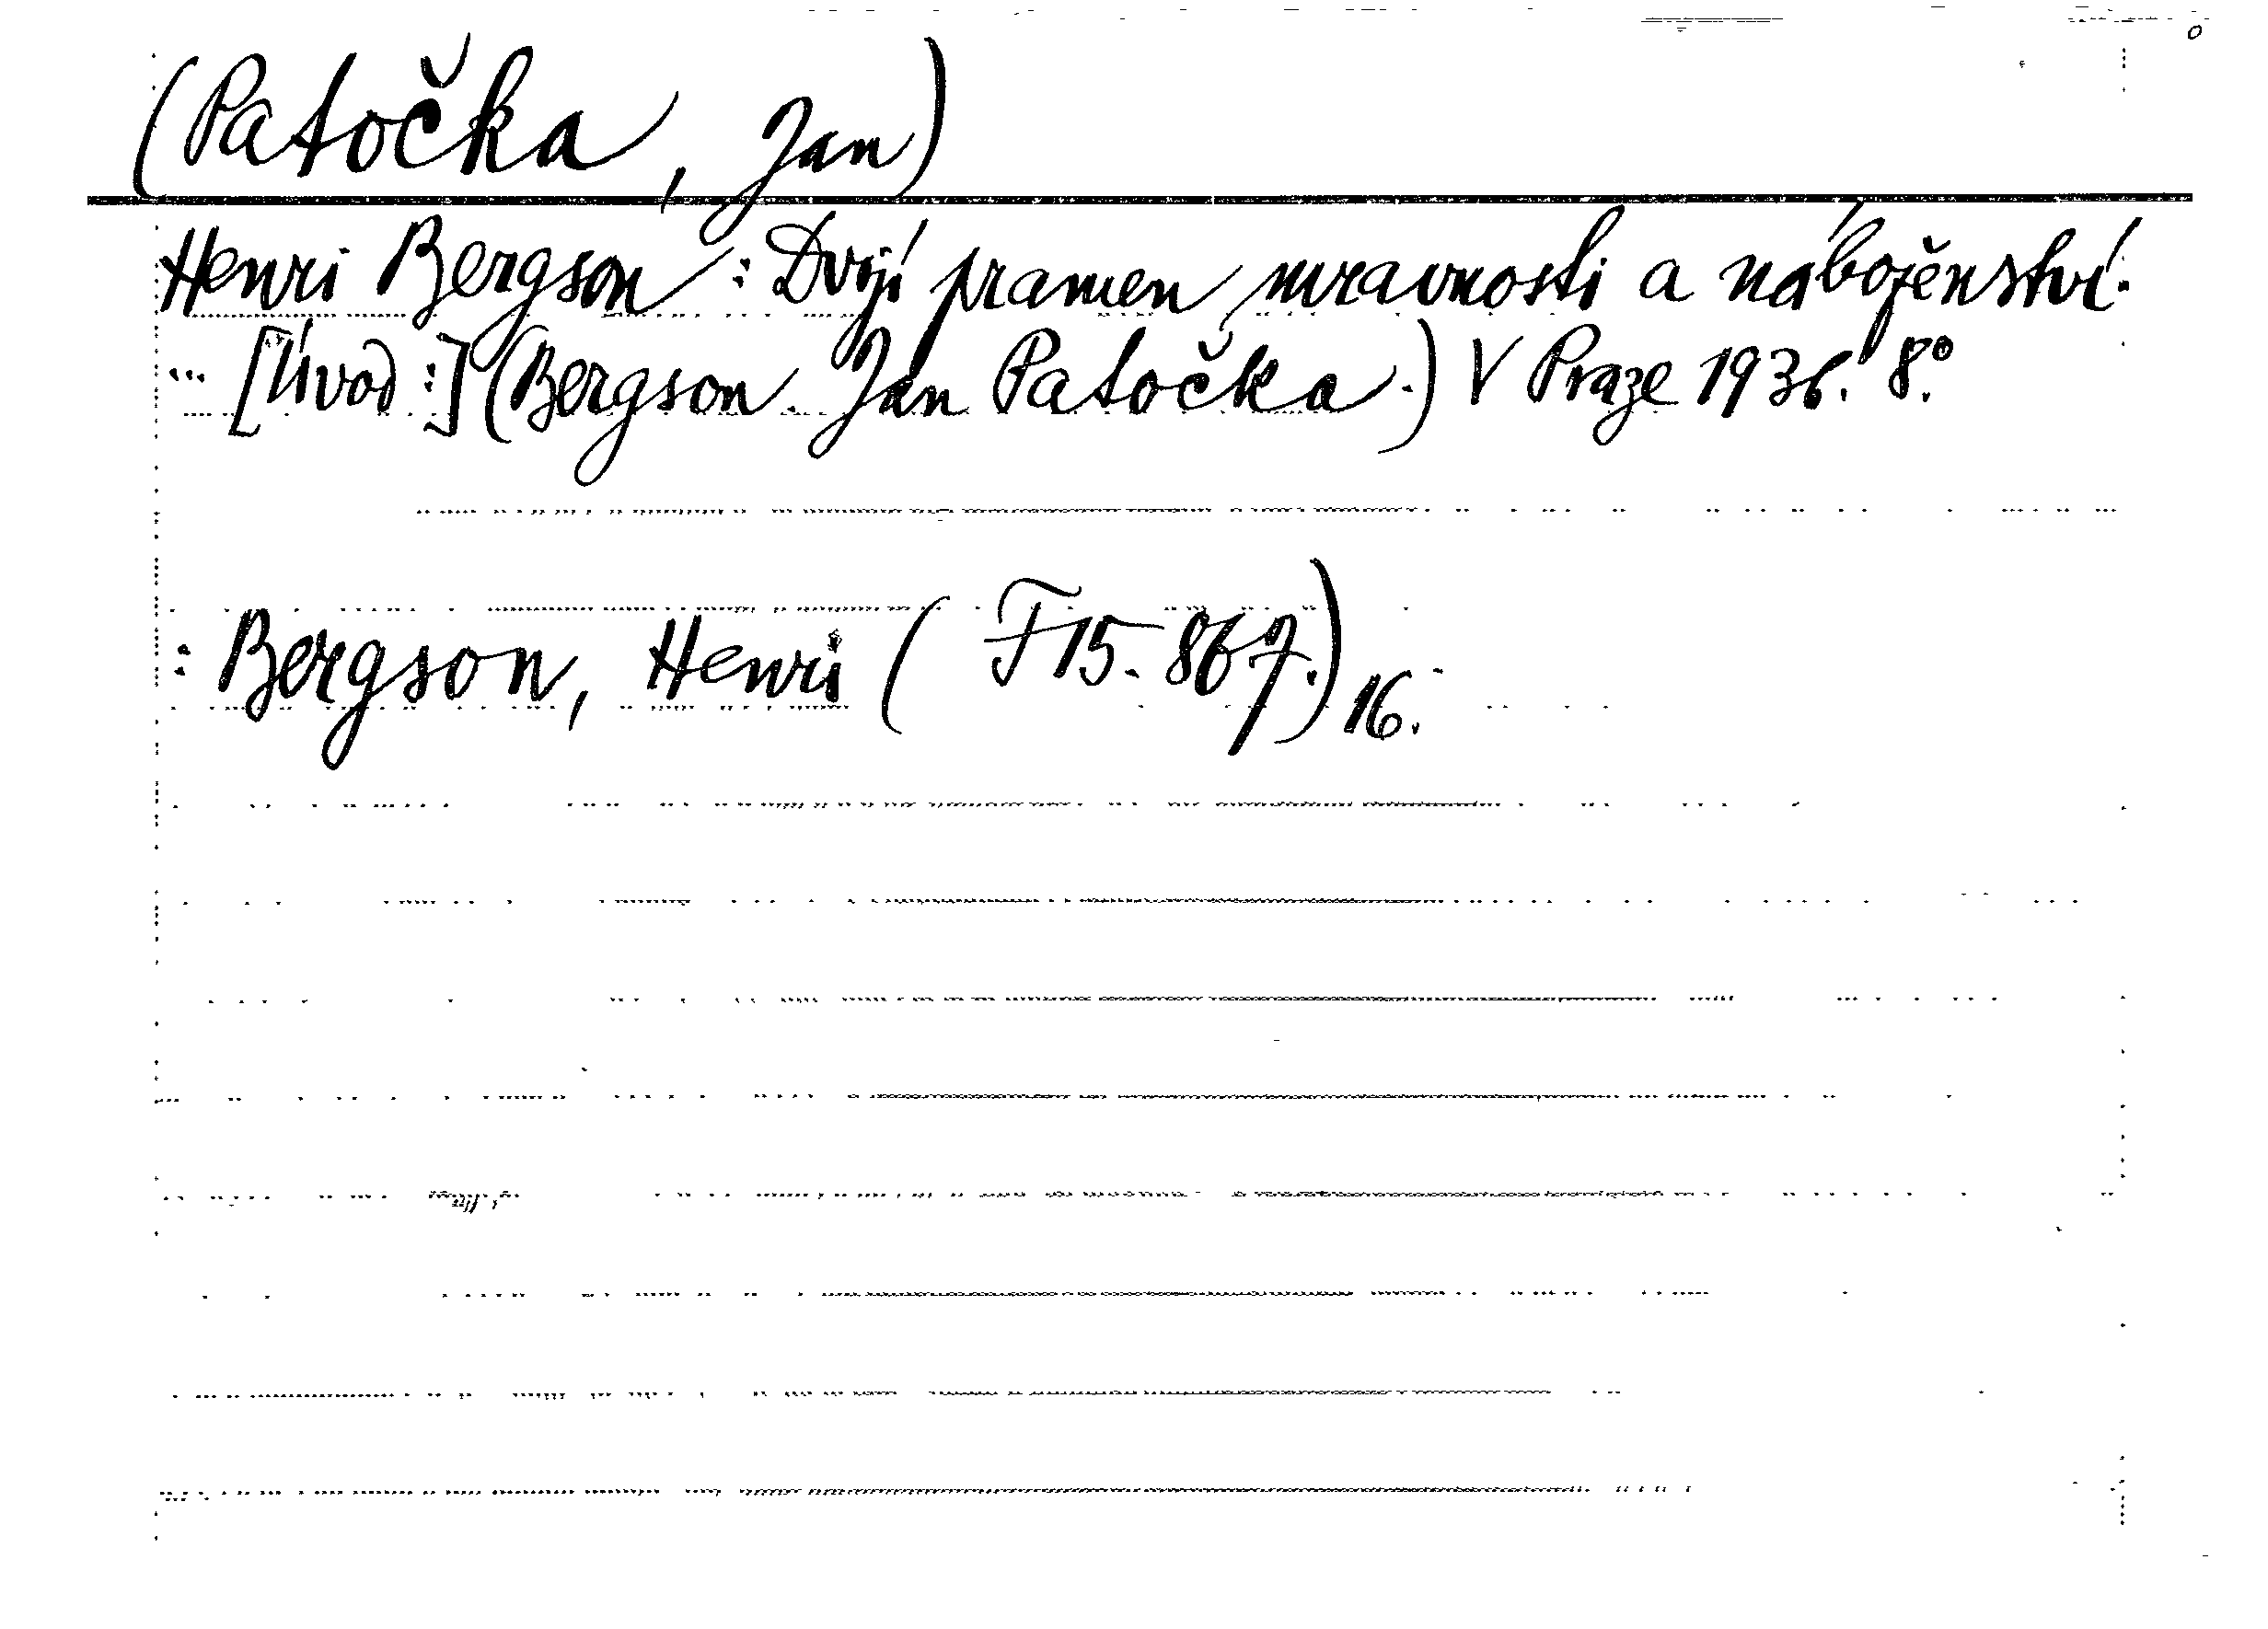 (Patočka, Jan)
Henri Bergson: Dvojí pramen mravnosti a náboženství.
... [Úvod:] (Bergson. Jan Patočka.) V Praze 1936. 8.°
: Bergson, Henri (F 15.867.) 16.